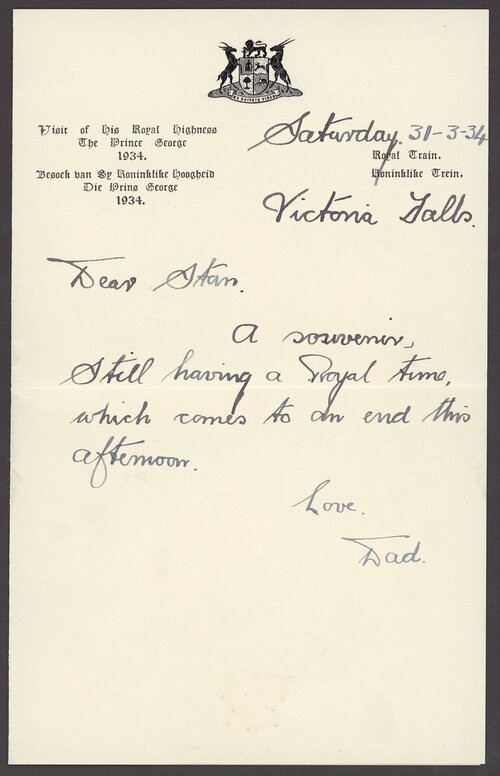 Visit of His Royal Highness
The Prince George
1934.
Besoek van Sy Koninklike Hoogheid
Die Prins George
1934.
Saturday. 31-3-34
Royal Train.
Koninklike Trein.
Victoria Falls.
Dear Stan.
A souvenir,
Still having a Royal time,
which comes to an end this
afternoon.
Love.
Dad.